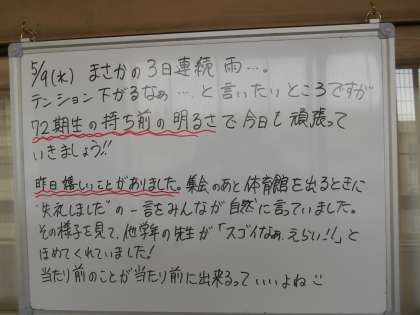 5/9(水) まさかの3日連続 雨…。
テンション下がるなぁ…と言いたいところですが
72期生の持ち前の明るさで今日も頑張って
いきましょう!!
昨日嬉しいことがありました。集会のあと体育館を出るときに
"失礼しました"の一言をみんなが自然に言っていました。
その様子を見て、他学年の先生が「スゴイなぁ、えらい!!」と
ほめてくれていました!
当たり前のことが当たり前に出来るっていいよね